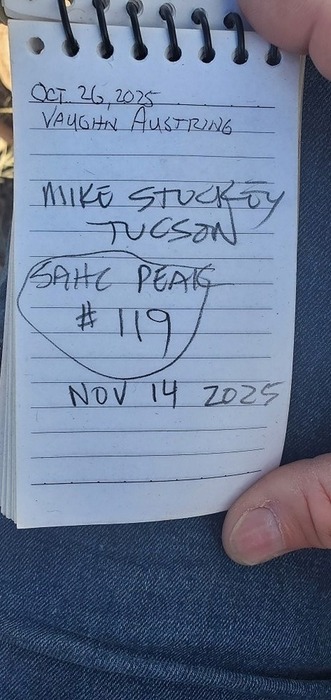 OCT. 26, 2025
VAUGHN AUSTRING
MIKE STUCKEY
TUCSON
SAHC PEAK
# 119
NOV 14 2025